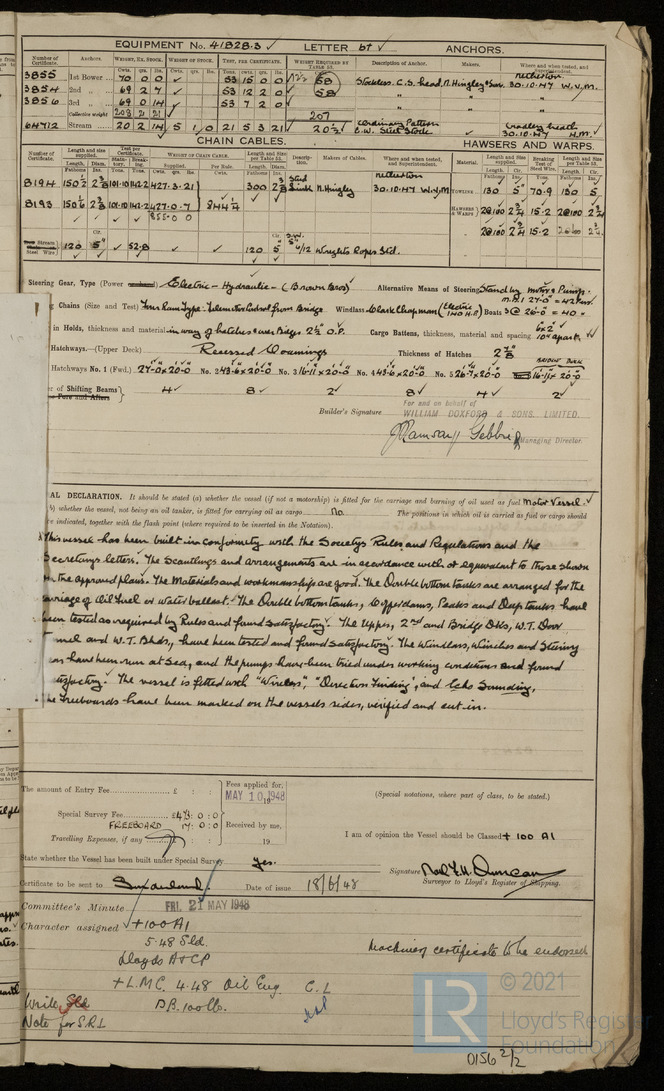 EQUIPMENT No. 41828.3 ✓ LETTER b† ✓ ANCHORS.
Number of Certificate. Anchors. WEIGHT, EX. STOCK. WEIGHT OF STOCK. TEST, PER CERTIFICATE. WEIGHT REQUIRED BY TABLE 53. Description of Anchor. Makers. Where and when tested, and Superintendent.
Cwts. qrs. lbs. Cwts. qrs. lbs. Tons. cwts. qrs. lbs.
3855 1st Bower 70 0 0 ✓ 53 15 0 0 68 Stockless C.S. head N. Hingley & Son. Netherton
3854 2nd „ 69 2 7 ✓ 53 12 2 0 58 „ „ 30.10.47 W.V.M.
3856 3rd „ 69 0 14 ✓ 53 7 2 0 „ „ „
Collective weight 208 2 21 207
64712 Stream 20 2 14 5 1 0 21 5 3 21 20½ Ordinary Pattern C.W. Steel Stock ✓ Cradley Heath 30.10.47 H.M. ✓
CHAIN CABLES. HAWSERS AND WARPS.
Number of Certificate. Length and size supplied. Test per Certificate. WEIGHT OF CHAIN CABLE. Length and size per Table 53. Description. Makers of Cables. Where and when tested, and Superintendent. Material. Length and size supplied. Breaking Test of Steel Wire. Length and Size per Table 53.
Length. Diam. Statutory. Breaking. Supplied. Per Rule. Length. Diam.
8194 150½ 2⅜ 101.10 142.2 427.3.21 300 2⅜ Stud Link N. Hingley Netherton 30.10.47 W.V.M TOWLINE 130 5" 70.9 130 5
8193 150½ 2⅜ 101.10 142.2 427.0.7 844¼ HAWSERS & WARPS 2@100 2¾ 15.2 2@100 2¾
855.0.0 „ 2@100 2¾ 15.2
Steel Wire 120 5" 52.8 ✓ ✓ 120 5" 6/12 Wrights Ropes Ltd.
Steering Gear, Type (Power Electric-Hydraulic-(Brown Bros) Alternative Means of Steering Stand by motor & Pump.
Chains (Size and Test) Four Ram Type. Telemotor Control from Bridge Windlass Clark Chapman (Electric 140 H.P.) Boats 3@ 26-0 = 40
in Holds, thickness and material in way of hatches & over bilges 2½" O.P. Cargo Battens, thickness, material and spacing 6"x2" 10" apart.
Hatchways.—(Upper Deck) Recessed Coamings Thickness of Hatches 2⅜"
Hatchways No. 1 (Fwd.) 27-0 x 20-0 No. 2 43-6 x 20-0 No. 3 16-11 x 20-0 No. 4 43-6 x 20-0 No. 5 26-7 x 20-0 16-11 x 20-0
of Shifting Beams 4 ✓ 8 ✓ 2 ✓ 8 ✓ 4 ✓ 2 ✓
or Fore and Afters
For and on behalf of
Builder's Signature WILLIAM DOXFORD & SONS. LIMITED.
J Ramsay Gebbie
Managing Director.
AL DECLARATION. It should be stated (a) whether the vessel (if not a motorship) is fitted for the carriage and burning of oil used as fuel Motor Vessel. ✓
) whether the vessel, not being an oil tanker, is fitted for carrying oil as cargo No The positions in which oil is carried as fuel or cargo should
be indicated, together with the flash point (where required to be inserted in the Notation).
This vessel has been built in conformity with the Societys Rules and Regulations and the
Secretarys letters. The Scantlings and arrangements are in accordance with or equivalent to those shown
on the approved plans. The Materials and workmanship are good. The Double bottom tanks are arranged for the
carriage of Oil Fuel or Water ballast. The Double bottom tanks, Cofferdams, Peaks and Deep tanks have
been tested as required by Rules and found satisfactory. The Upper, 2nd and Bridge Dks, W.T. Door
nel and W.T. Bhds, have been tested and found satisfactory. The Windlass, Winches and Steering
ear have been run at Sea, and the pumps have been tried under working conditions and found
tisfactory. The vessel is fitted with "Wireless", "Direction Finding", and Echo Sounding.
he Freeboards have been marked on the vessels sides, verified and cut in.
The amount of Entry Fee £ : : Fees applied for, MAY 10 1948
(Special notations, where part of class, to be stated.)
Special Survey Fee £473 : 0 : 0
FREEBOARD 17 : 0 : 0 Received by me,
Travelling Expenses, if any £ : : 19
I am of opinion the Vessel should be Classed + 100 A1
State whether the Vessel has been built under Special Survey yes.
Signature Neil F.M. Duncan
Surveyor to Lloyd's Register of Shipping.
Certificate to be sent to Sunderland. Date of issue 18/6/48
Committee's Minute FRI. 21 MAY 1948
Character assigned +100A1
5.48 Sld.
Lloyds A & CP
Machinery certificate to be endorsed
+ L.M.C. 4.48 Oil Eng. C.L
D.B. 100 lb.
Write Sld
Note for S.R.L
© 2021
LR Lloyd's Register
Foundation
0156 2/2